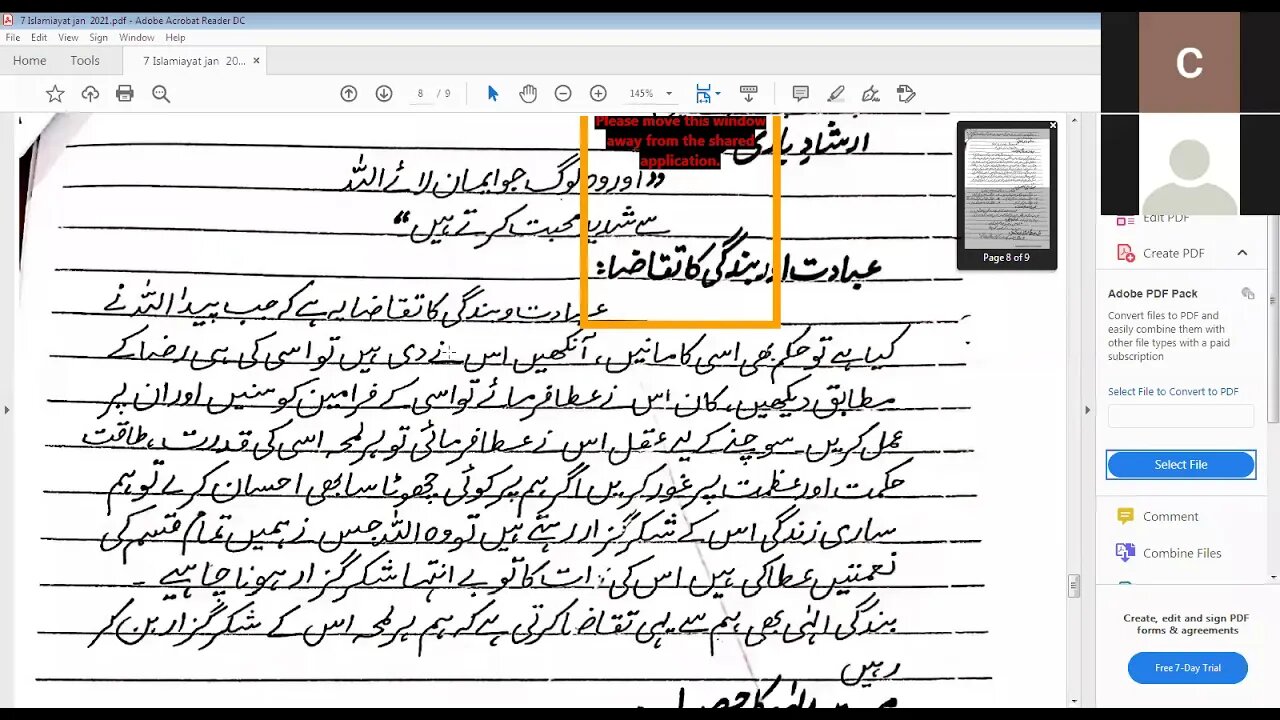 7 Islamiayat jan 2021.pdf - Adobe Acrobat Reader DC
File Edit View Sign Window Help
Home Tools 7 Islamiayat jan 20... ×
8 / 9 145%
C
Please move this window
away from the shared
application.
ارشادِ باری
"اور وہ لوگ جو ایمان لائے اللہ
سے شدید محبت کرتے ہیں"
عبادت اور بندگی کا تقاضا:
عبادت و بندگی کا تقاضا یہ ہے کہ جب پیدا اللہ نے
کیا ہے تو حکم بھی اسی کا مانیں، آنکھیں اس نے دی ہیں تو اسی کی ہی رضا کے
مطابق دیکھیں، کان اس نے عطا فرمائے تو اسی کے فرامین کو سنیں اور ان پر
عمل کریں۔ سوچنے کے لیے عقل اس نے عطا فرمائی تو ہر لمحہ اسی کی قدرت، طاقت
حکمت اور عظمت پر غور کریں اگر ہم پر کوئی چھوٹا سا بھی احسان کرے تو ہم
ساری زندگی اس کے شکر گزار رہتے ہیں تو وہ اللہ جس نے ہمیں تمام قسم کی
نعمتیں عطا کی ہیں اس کی ذات کا تو بے انتہا شکر گزار ہونا چاہیے۔
بندگی الٰہی بھی ہم سے یہی تقاضا کرتی ہے کہ ہم ہر لمحہ اس کے شکر گزار بن کر
رہیں
Page 8 of 9
Edit PDF
Create PDF
Adobe PDF Pack
Convert files to PDF and
easily combine them with
other file types with a paid
subscription
Select File to Convert to PDF
Select File
Comment
Combine Files
Create, edit and sign PDF
forms & agreements
Free 7-Day Trial